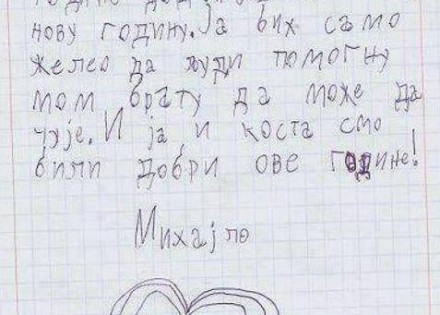 нову годину. Ја бих само
желео да људи помогну
мом брату да може да
чује. И ја и коста смо
били добри ове године!
Михајло